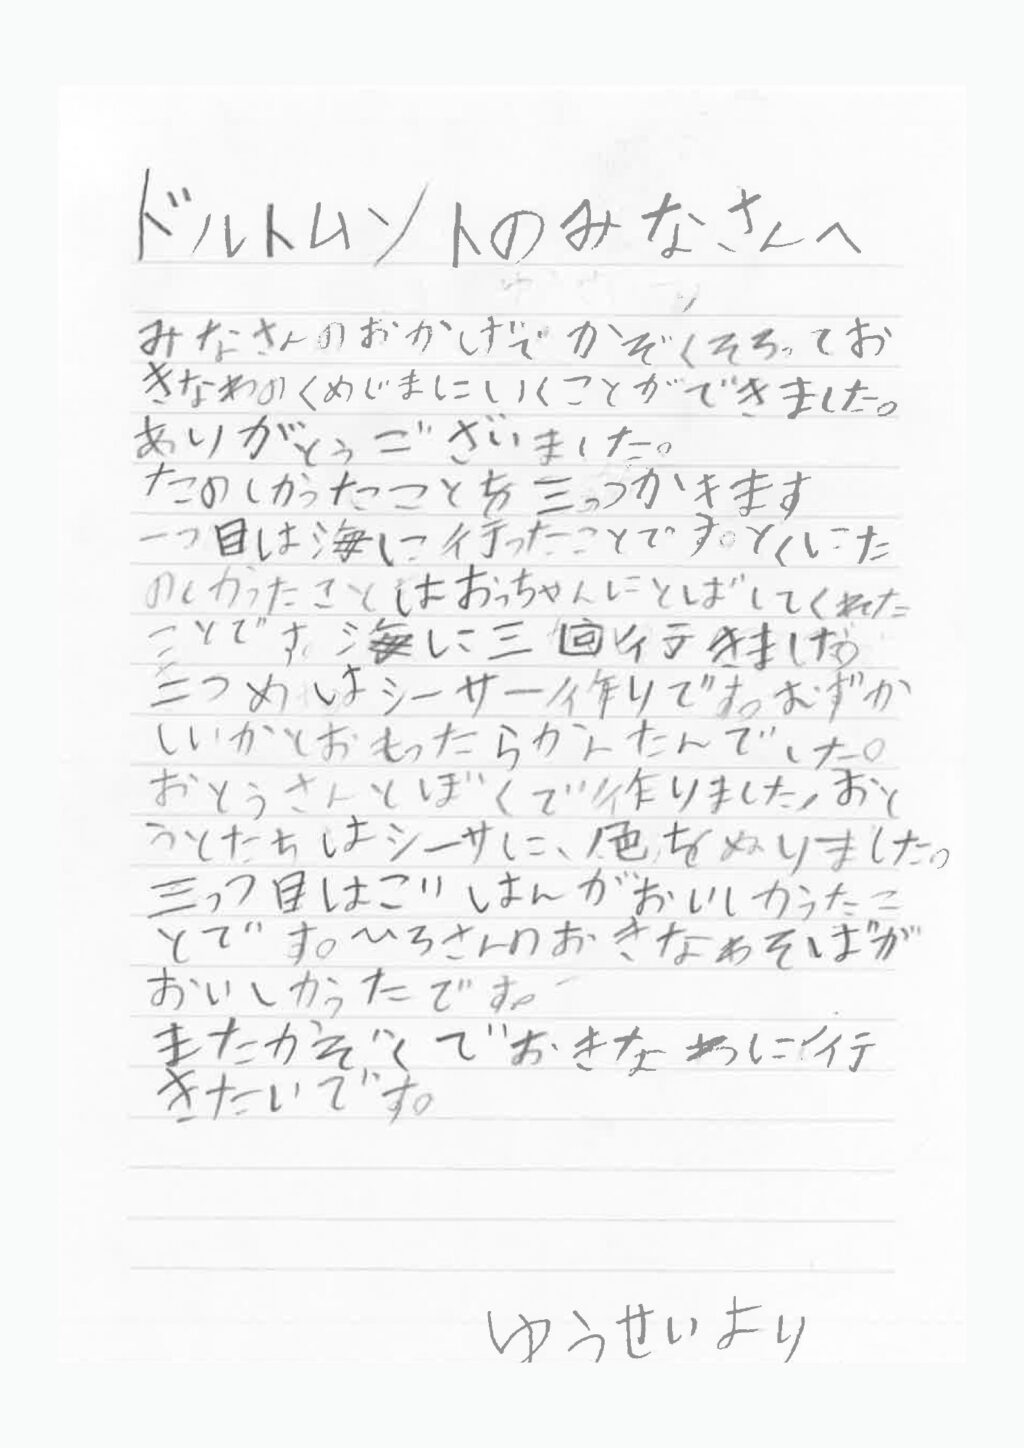 ドルトムントのみなさんへ
みなさんのおかげでかぞくそろってお
きなわのくめじまにいくことができました。
ありがとうございました。
たのしかったことを三っつかきます
一つ目は海に行ったことです。とくにた
のしかったことはおっちゃんにとばしてくれた
ことです。海に三回行きました
二つめはシーサー作りです。むずか
しいかとおもったらかんたんでした。
おとうさんとぼくで作りました、おと
うとたちはシーサに、色をぬりました。
三っつ目はごはんがおいしかったこ
とです。ひろさんのおきなわそばが
おいしかったです。
またかぞくでおきなわに行
きたいです。
ゆうせいより